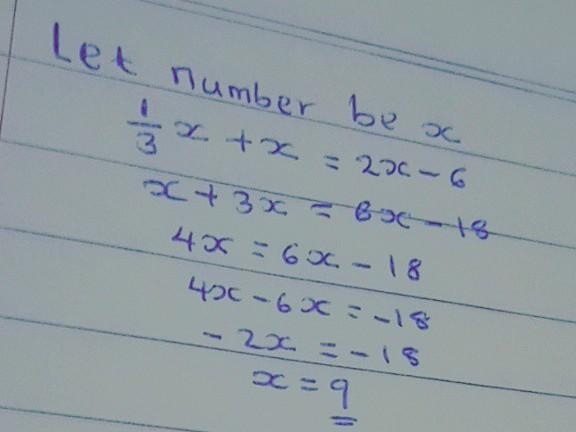 Let number be x
1/3 x + x = 2x - 6
x + 3x = 6x - 18
4x = 6x - 18
4x - 6x = -18
- 2x = - 18
x = 9